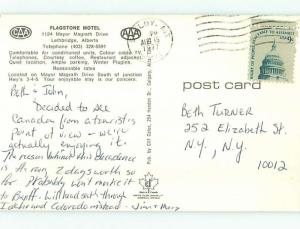 FLAGSTONE MOTEL
1124 Mayor Magrath Drive
Lethbridge, Alberta
Telephone (403) 328-5591
Comfortable Air conditioned units, Colour cable
Quiet Court, Ample parking, Winter Plugins.
Reasonable rates
Located on Mayor Magrath Drive South at junction
Hwy's 3-4-5
CAA
AAA
post card
Beth & John,
Decided to see
Canada from a tourist's
point of view - we're
actually enjoying it.
The reason behind this decadence
is the rainy 2 days worth so
far. Probably won't make it
to Banff. Will head south through
Idaho and Colorado instead - Jim & Mary
BETH TURNER
252 Elizabeth St.
N.Y., N.Y.
10012